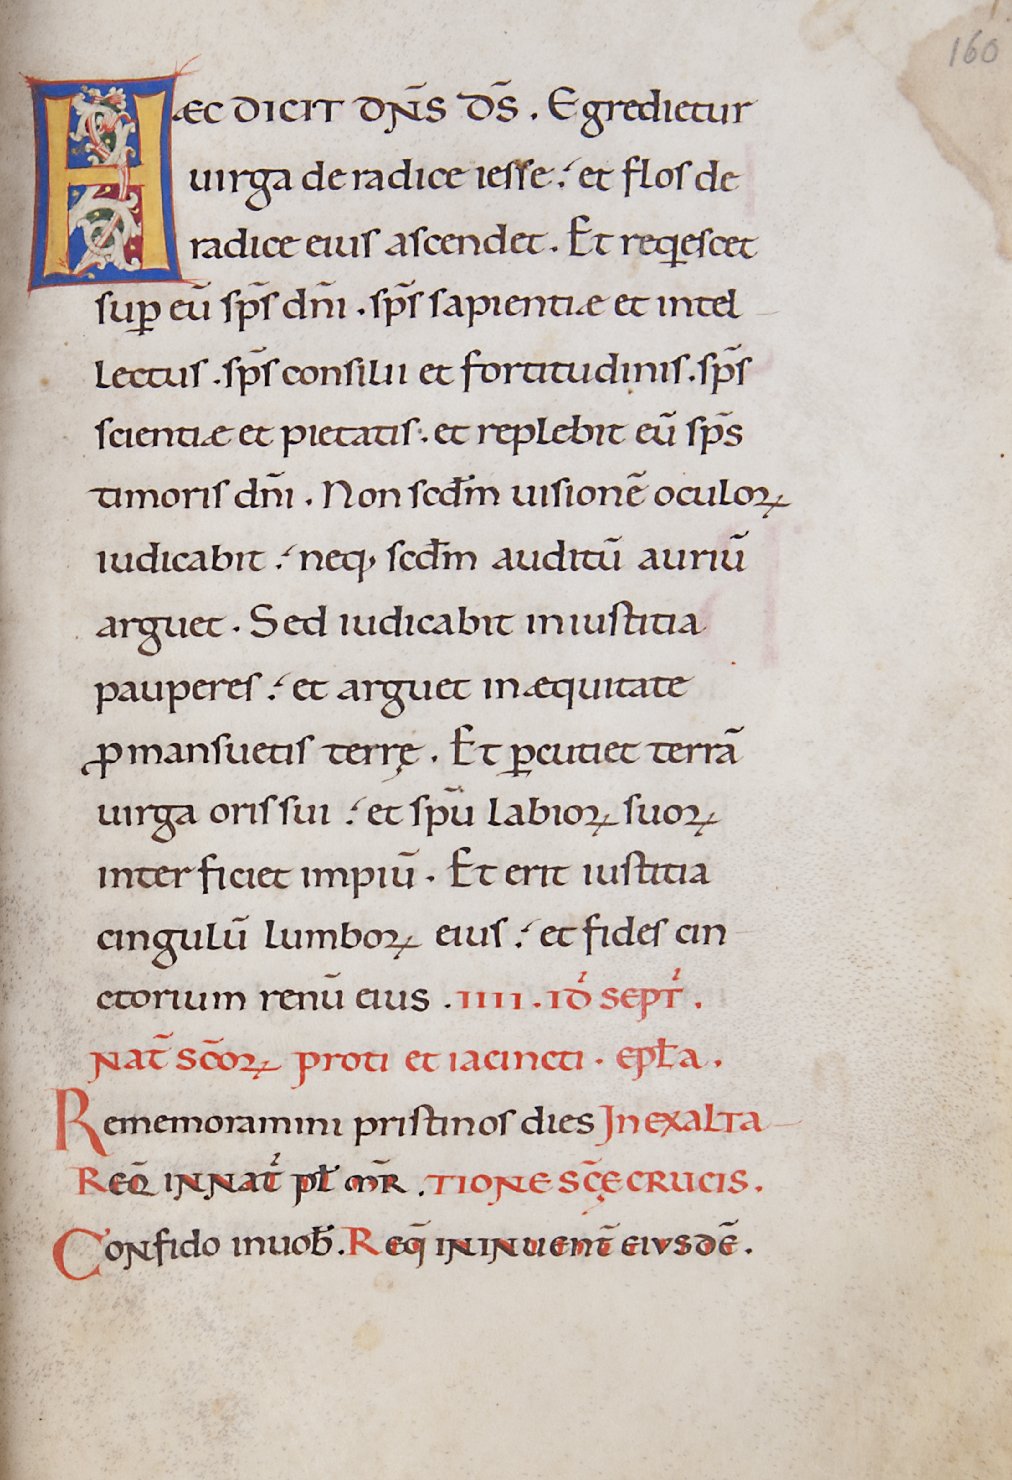 160
HÆC DICIT DN̄S D̄S . Egredietur
uirga de radice iesse : et flos de
radice eius ascendet . Et reqiescet
suꝑ eū sp̄s dn̄i . sp̄s sapientiæ et intel
lectus . sp̄s consilii et fortitudinis . sp̄s
scientiæ et pietatis . et replebit eū sp̄s
timoris dn̄i . Non scd̄m uisionē oculoꝝ
iudicabit : neq; scd̄m auditū auriū
arguet . Sed iudicabit in iustitia
pauperes : et arguet in æquitate
ꝓ mansuetis terrę . Et ꝑcutiet terrā
uirga oris sui : et sp̄u labioꝝ suoꝝ
interficiet impiū . Et erit iustitia
cingulū lumboꝝ eius : et fides cin
ctorium renū eius . IIII . ID' SEPT' .
NAT̄ SC̄OꝜ proti et iacincti . epl̄a .
Rememoramini pristinos dies In exalta
REQ̄ IN NAT' pl̄ m̄R . TIONE SC̄Ę CRUCIS .
Confido in uob̄ . REQ̄ IN INUENT̄ EIUSDĒ .